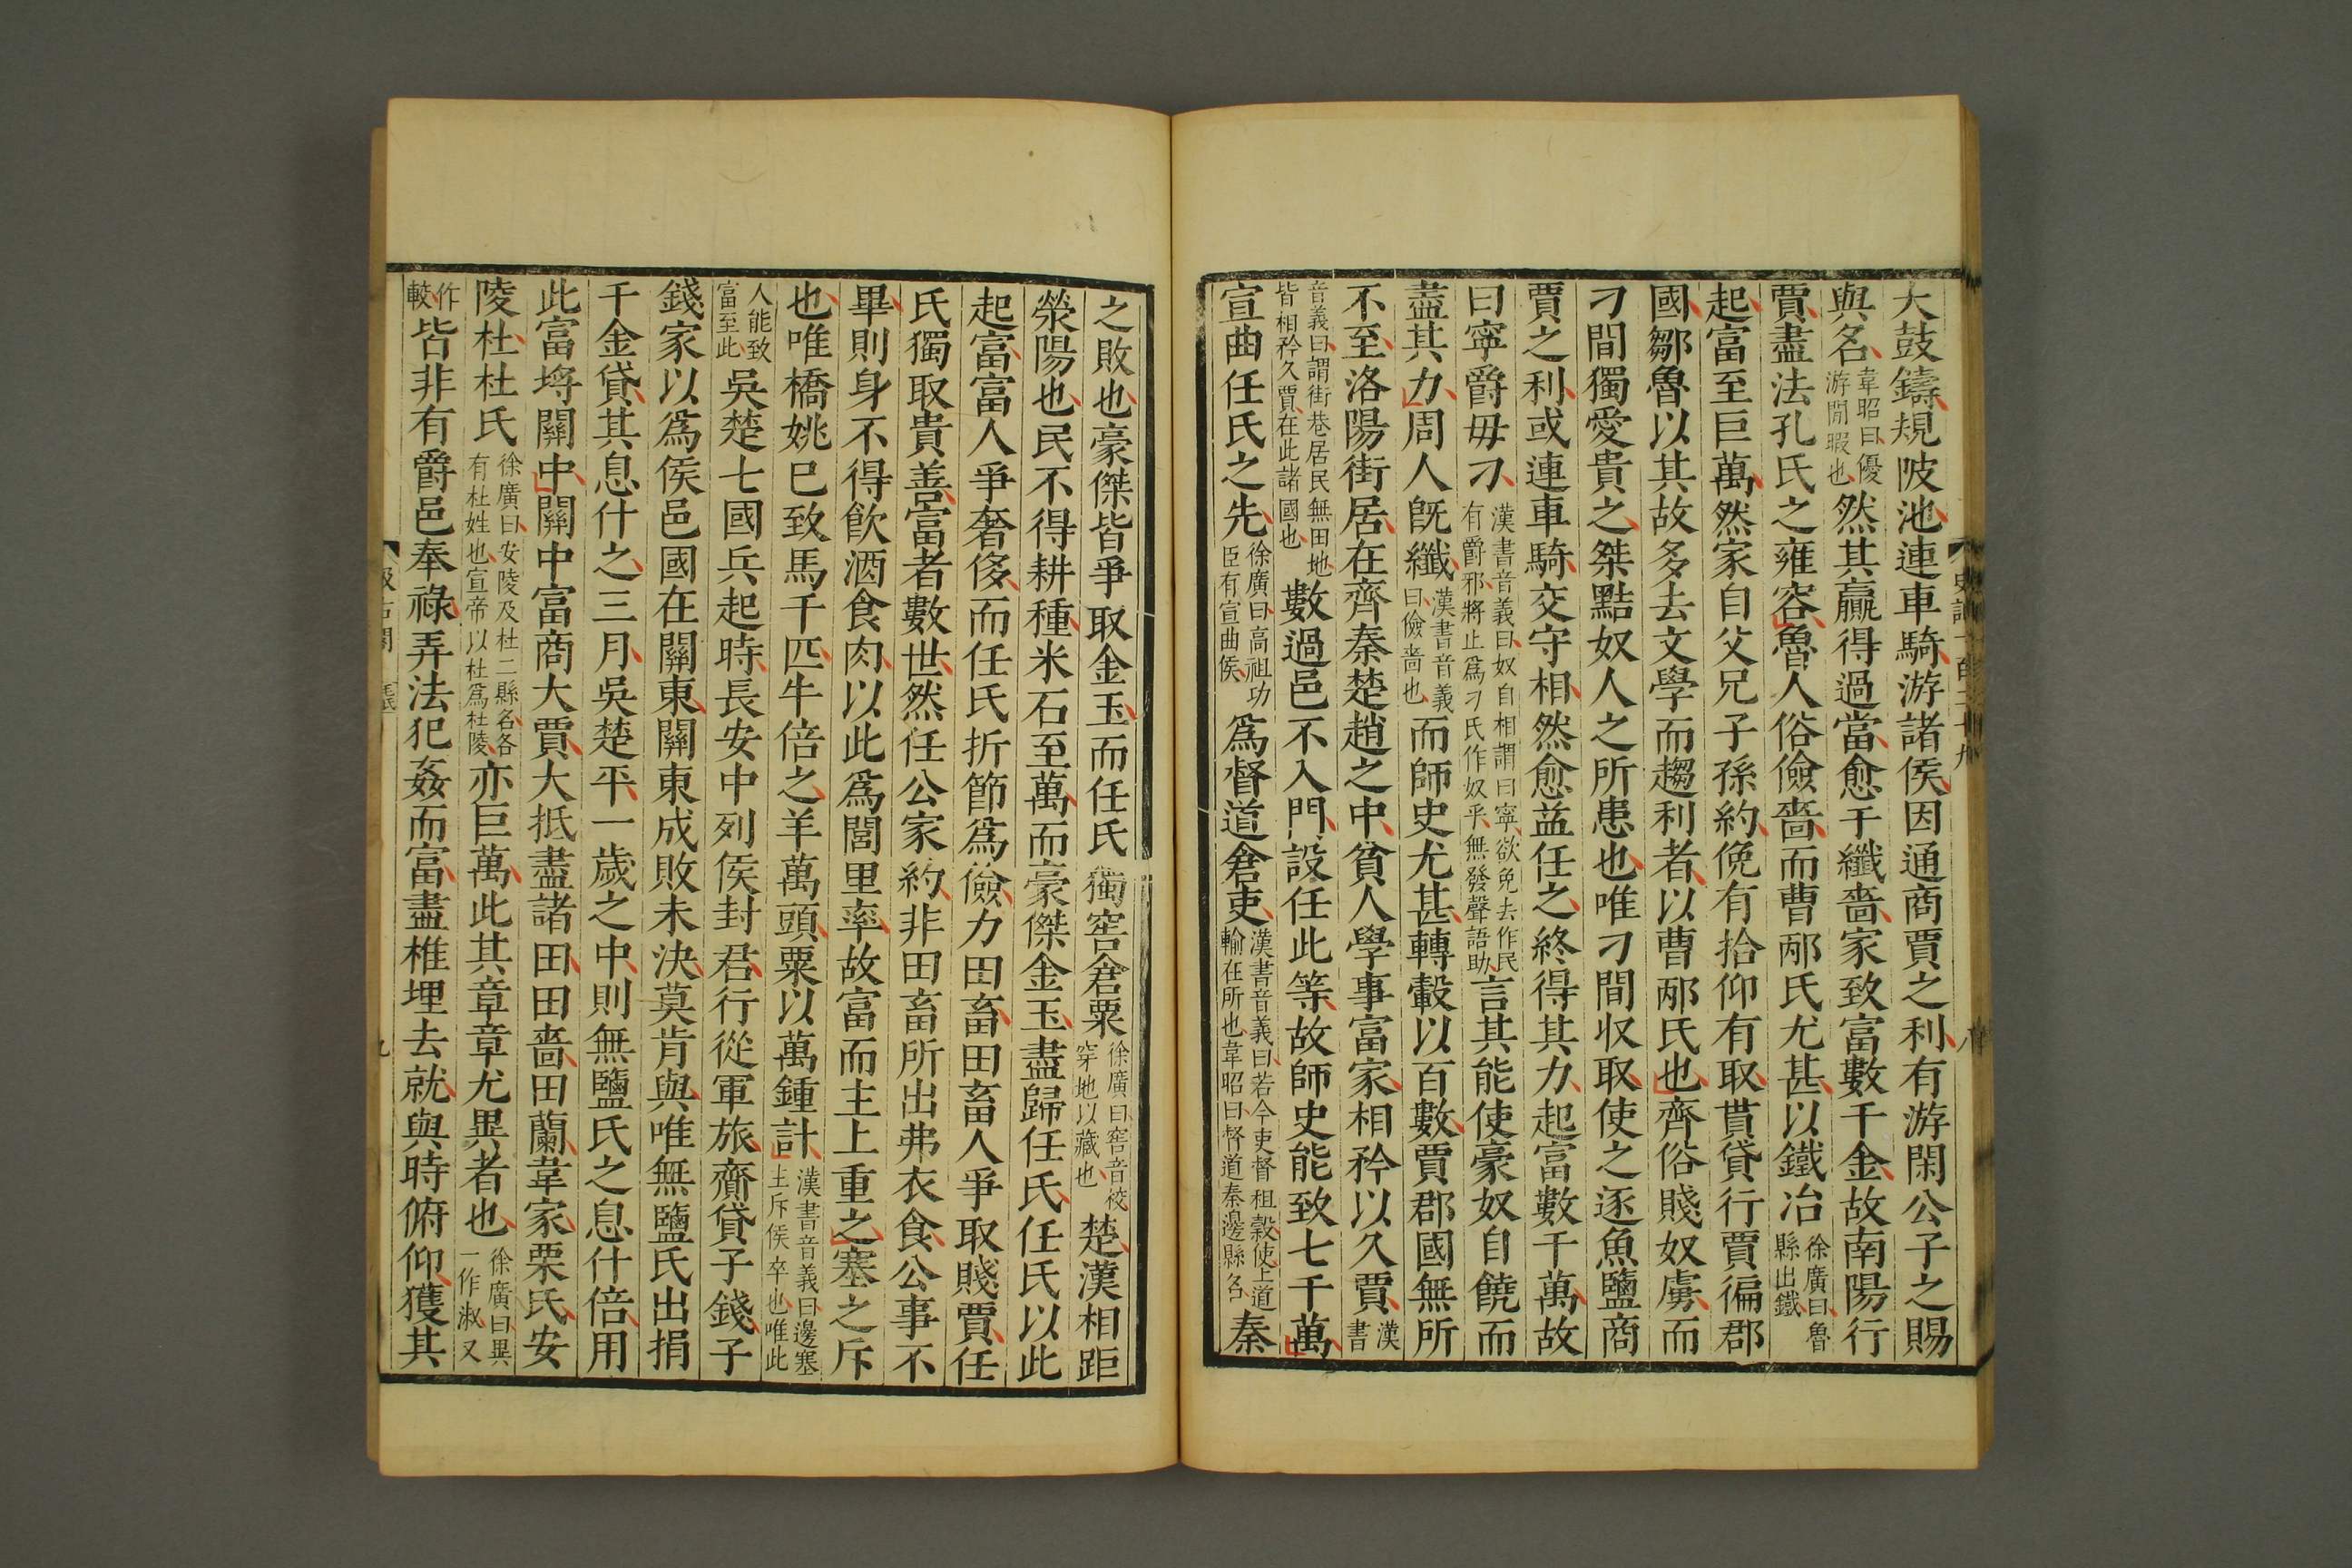 大鼓鑄規陂池連車騎游諸侯因通商賈之利有游閑公子之賜
與名韋昭曰優游閒暇也然其贏得過當愈于纖嗇家致富數千金故南陽行
賈盡法孔氏之雍容魯人俗儉嗇而曹邴氏尤甚以鐵冶徐廣曰魯縣出鐵
起富至巨萬然家自父兄子孫約俛有拾仰有取貰貸行賈徧郡
國鄒魯以其故多去文學而趨利者以曹邴氏也齊俗賤奴虜而
刁間獨愛貴之桀黠奴人之所患也唯刁間収取使之逐魚鹽商
賈之利或連車騎交守相然愈益任之終得其力起富數千萬故
曰寧爵毋刁漢書音義曰奴自相謂曰寧欲免去作民有爵邪將止爲刁氏作奴乎無發聲語助言其能使豪奴自饒而
盡其力周人旣纖漢書音義曰儉嗇也而師史尤甚轉轂以百數賈郡國無所
不至洛陽街居在齊秦楚趙之中貧人學事富家相矜以久賈漢書
音義曰謂街巷居民無田地皆相矜久賈在此諸國也數過邑不入門設任此等故師史能致七千萬
宣曲任氏之先徐廣曰高祖功臣有宣曲侯爲督道倉吏漢書音義曰若今吏督租穀使上道輸在所也韋昭曰督道秦邊縣名秦
之敗也豪傑皆爭取金玉而任氏獨窖倉粟徐廣曰窖音校穿地以藏也楚漢相距
滎陽也民不得耕種米石至萬而豪傑金玉盡歸任氏任氏以此
起富富人爭奢侈而任氏折節爲儉力田畜田畜人爭取賤賈任
氏獨取貴善富者數世然任公家約非田畜所出弗衣食公事不
畢則身不得飲酒食肉以此爲閭里率故富而主上重之塞之斥
也唯橋姚已致馬千匹牛倍之羊萬頭粟以萬鍾計漢書音義曰邊塞主斥侯卒也唯此
人能致富至此吳楚七國兵起時長安中列侯封君行從軍旅齎貸子錢子
錢家以爲侯邑國在關東關東成敗未決莫肯與唯無鹽氏出捐
千金貸其息什之三月吳楚平一歲之中則無鹽氏之息什倍用
此富埒關中關中富商大賈大抵盡諸田田嗇田蘭韋家栗氏安
陵杜杜氏徐廣曰安陵及杜二縣名各有杜姓也宣帝以杜爲杜陵亦巨萬此其章章尤異者也徐廣曰異一作淑又
作較皆非有爵邑奉祿弄法犯姦而富盡椎埋去就與時俯仰獲其